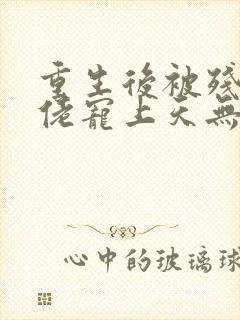 重生後被殘
佬寵上天無
心中的玻璃球